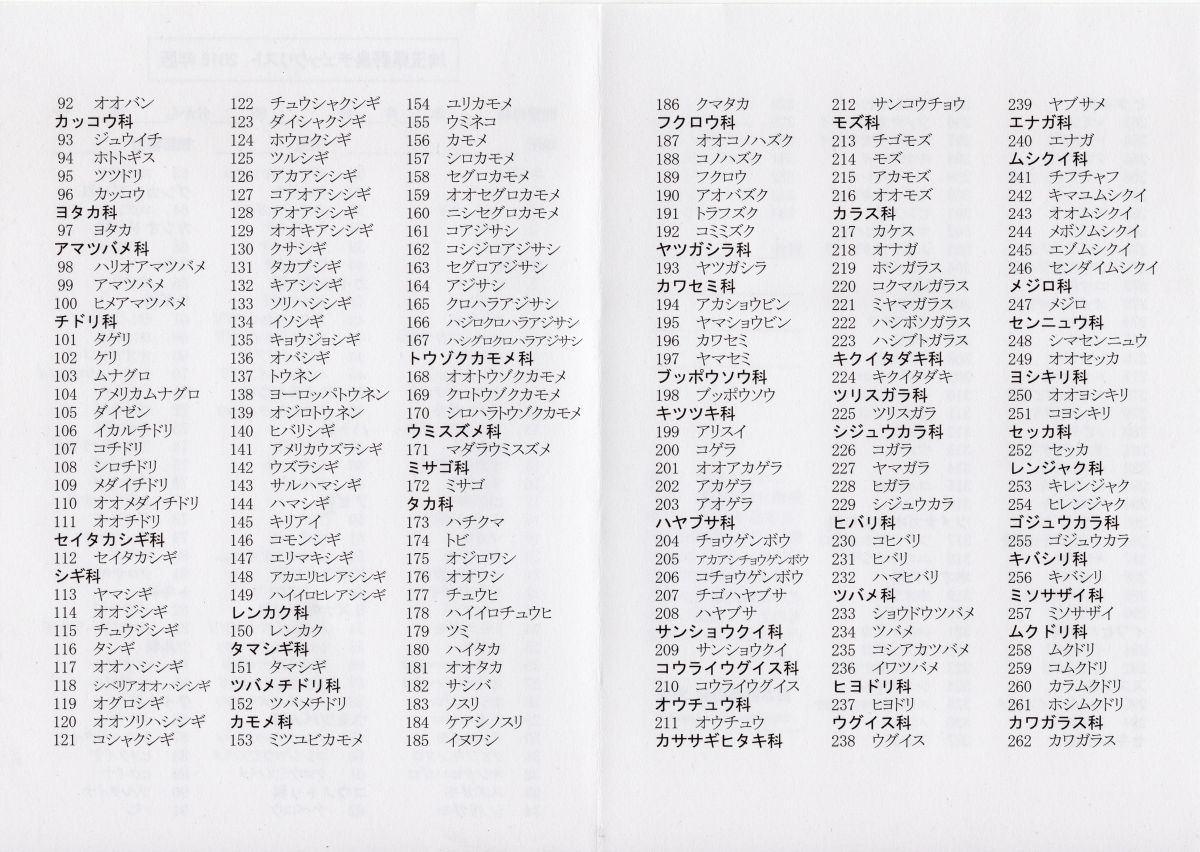 92 オオバン
カッコウ科
93 ジュウイチ
94 ホトトギス
95 ツツドリ
96 カッコウ
ヨタカ科
97 ヨタカ
アマツバメ科
98 ハリオアマツバメ
99 アマツバメ
100 ヒメアマツバメ
チドリ科
101 タゲリ
102 ケリ
103 ムナグロ
104 アメリカムナグロ
105 ダイゼン
106 イカルチドリ
107 コチドリ
108 シロチドリ
109 メダイチドリ
110 オオメダイチドリ
111 オオチドリ
セイタカシギ科
112 セイタカシギ
シギ科
113 ヤマシギ
114 オオジシギ
115 チュウジシギ
116 タシギ
117 オオハシシギ
118 シベリアオオハシシギ
119 オグロシギ
120 オオソリハシシギ
121 コシャクシギ
122 チュウシャクシギ
123 ダイシャクシギ
124 ホウロクシギ
125 ツルシギ
126 アカアシシギ
127 コアオアシシギ
128 アオアシシギ
129 オオキアシシギ
130 クサシギ
131 タカブシギ
132 キアシシギ
133 ソリハシシギ
134 イソシギ
135 キョウジョシギ
136 オバシギ
137 トウネン
138 ヨーロッパトウネン
139 オジロトウネン
140 ヒバリシギ
141 アメリカウズラシギ
142 ウズラシギ
143 サルハマシギ
144 ハマシギ
145 キリアイ
146 コモンシギ
147 エリマキシギ
148 アカエリヒレアシシギ
149 ハイイロヒレアシシギ
レンカク科
150 レンカク
タマシギ科
151 タマシギ
ツバメチドリ科
152 ツバメチドリ
カモメ科
153 ミツユビカモメ
154 ユリカモメ
155 ウミネコ
156 カモメ
157 シロカモメ
158 セグロカモメ
159 オオセグロカモメ
160 ニシセグロカモメ
161 コアジサシ
162 コシジロアジサシ
163 セグロアジサシ
164 アジサシ
165 クロハラアジサシ
166 ハジロクロハラアジサシ
167 ハシグロクロハラアジサシ
トウゾクカモメ科
168 オオトウゾクカモメ
169 クロトウゾクカモメ
170 シロハラトウゾクカモメ
ウミスズメ科
171 マダラウミスズメ
ミサゴ科
172 ミサゴ
タカ科
173 ハチクマ
174 トビ
175 オジロワシ
176 オオワシ
177 チュウヒ
178 ハイイロチュウヒ
179 ツミ
180 ハイタカ
181 オオタカ
182 サシバ
183 ノスリ
184 ケアシノスリ
185 イヌワシ
186 クマタカ
フクロウ科
187 オオコノハズク
188 コノハズク
189 フクロウ
190 アオバズク
191 トラフズク
192 コミミズク
ヤツガシラ科
193 ヤツガシラ
カワセミ科
194 アカショウビン
195 ヤマショウビン
196 カワセミ
197 ヤマセミ
ブッポウソウ科
198 ブッポウソウ
キツツキ科
199 アリスイ
200 コゲラ
201 オオアカゲラ
202 アカゲラ
203 アオゲラ
ハヤブサ科
204 チョウゲンボウ
205 アカアシチョウゲンボウ
206 コチョウゲンボウ
207 チゴハヤブサ
208 ハヤブサ
サンショウクイ科
209 サンショウクイ
コウライウグイス科
210 コウライウグイス
オウチュウ科
211 オウチュウ
カササギヒタキ科
212 サンコウチョウ
モズ科
213 チゴモズ
214 モズ
215 アカモズ
216 オオモズ
カラス科
217 カケス
218 オナガ
219 ホシガラス
220 コクマルガラス
221 ミヤマガラス
222 ハシボソガラス
223 ハシブトガラス
キクイタダキ科
224 キクイタダキ
ツリスガラ科
225 ツリスガラ
シジュウカラ科
226 コガラ
227 ヤマガラ
228 ヒガラ
229 シジュウカラ
ヒバリ科
230 コヒバリ
231 ヒバリ
232 ハマヒバリ
ツバメ科
233 ショウドウツバメ
234 ツバメ
235 コシアカツバメ
236 イワツバメ
ヒヨドリ科
237 ヒヨドリ
ウグイス科
238 ウグイス
239 ヤブサメ
エナガ科
240 エナガ
ムシクイ科
241 チフチャフ
242 キマユムシクイ
243 オオムシクイ
244 メボソムシクイ
245 エゾムシクイ
246 センダイムシクイ
メジロ科
247 メジロ
センニュウ科
248 シマセンニュウ
249 オオセッカ
ヨシキリ科
250 オオヨシキリ
251 コヨシキリ
セッカ科
252 セッカ
レンジャク科
253 キレンジャク
254 ヒレンジャク
ゴジュウカラ科
255 ゴジュウカラ
キバシリ科
256 キバシリ
ミソサザイ科
257 ミソサザイ
ムクドリ科
258 ムクドリ
259 コムクドリ
260 カラムクドリ
261 ホシムクドリ
カワガラス科
262 カワガラス